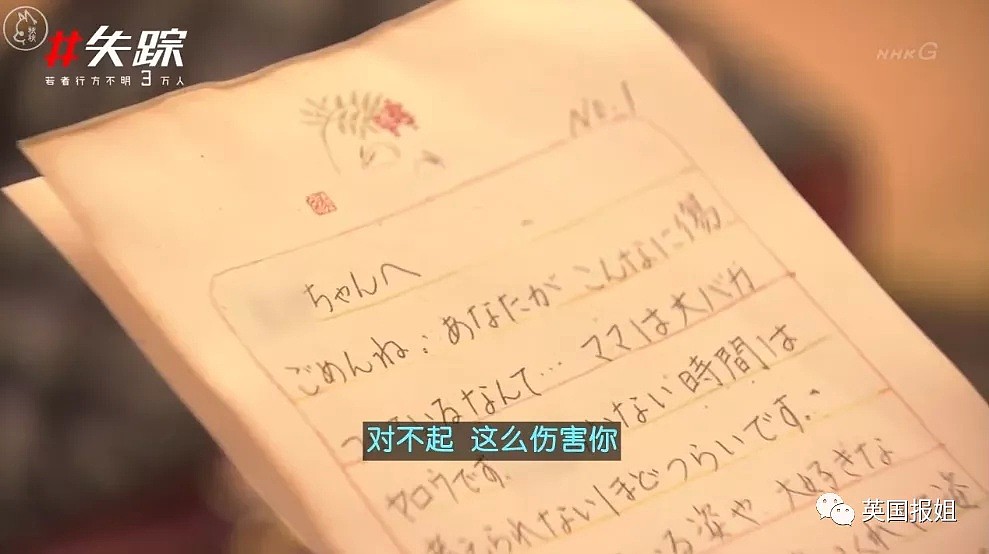 #失踪
若者行方不明3万人
NHK G
No.1
ちゃんへ
ごめんね：あなたがこんなに傷
ついているなんて…ママは大バカ
ヤロウです。 いない時間は
考えられないほどつらいです。
る姿や大好きな
姿
对不起 这么伤害你
英国报姐